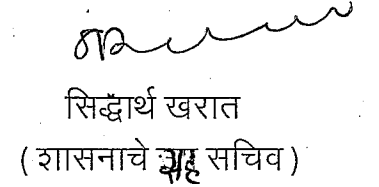 सिद्धार्थ खरात
( शासनाचे सह सचिव )